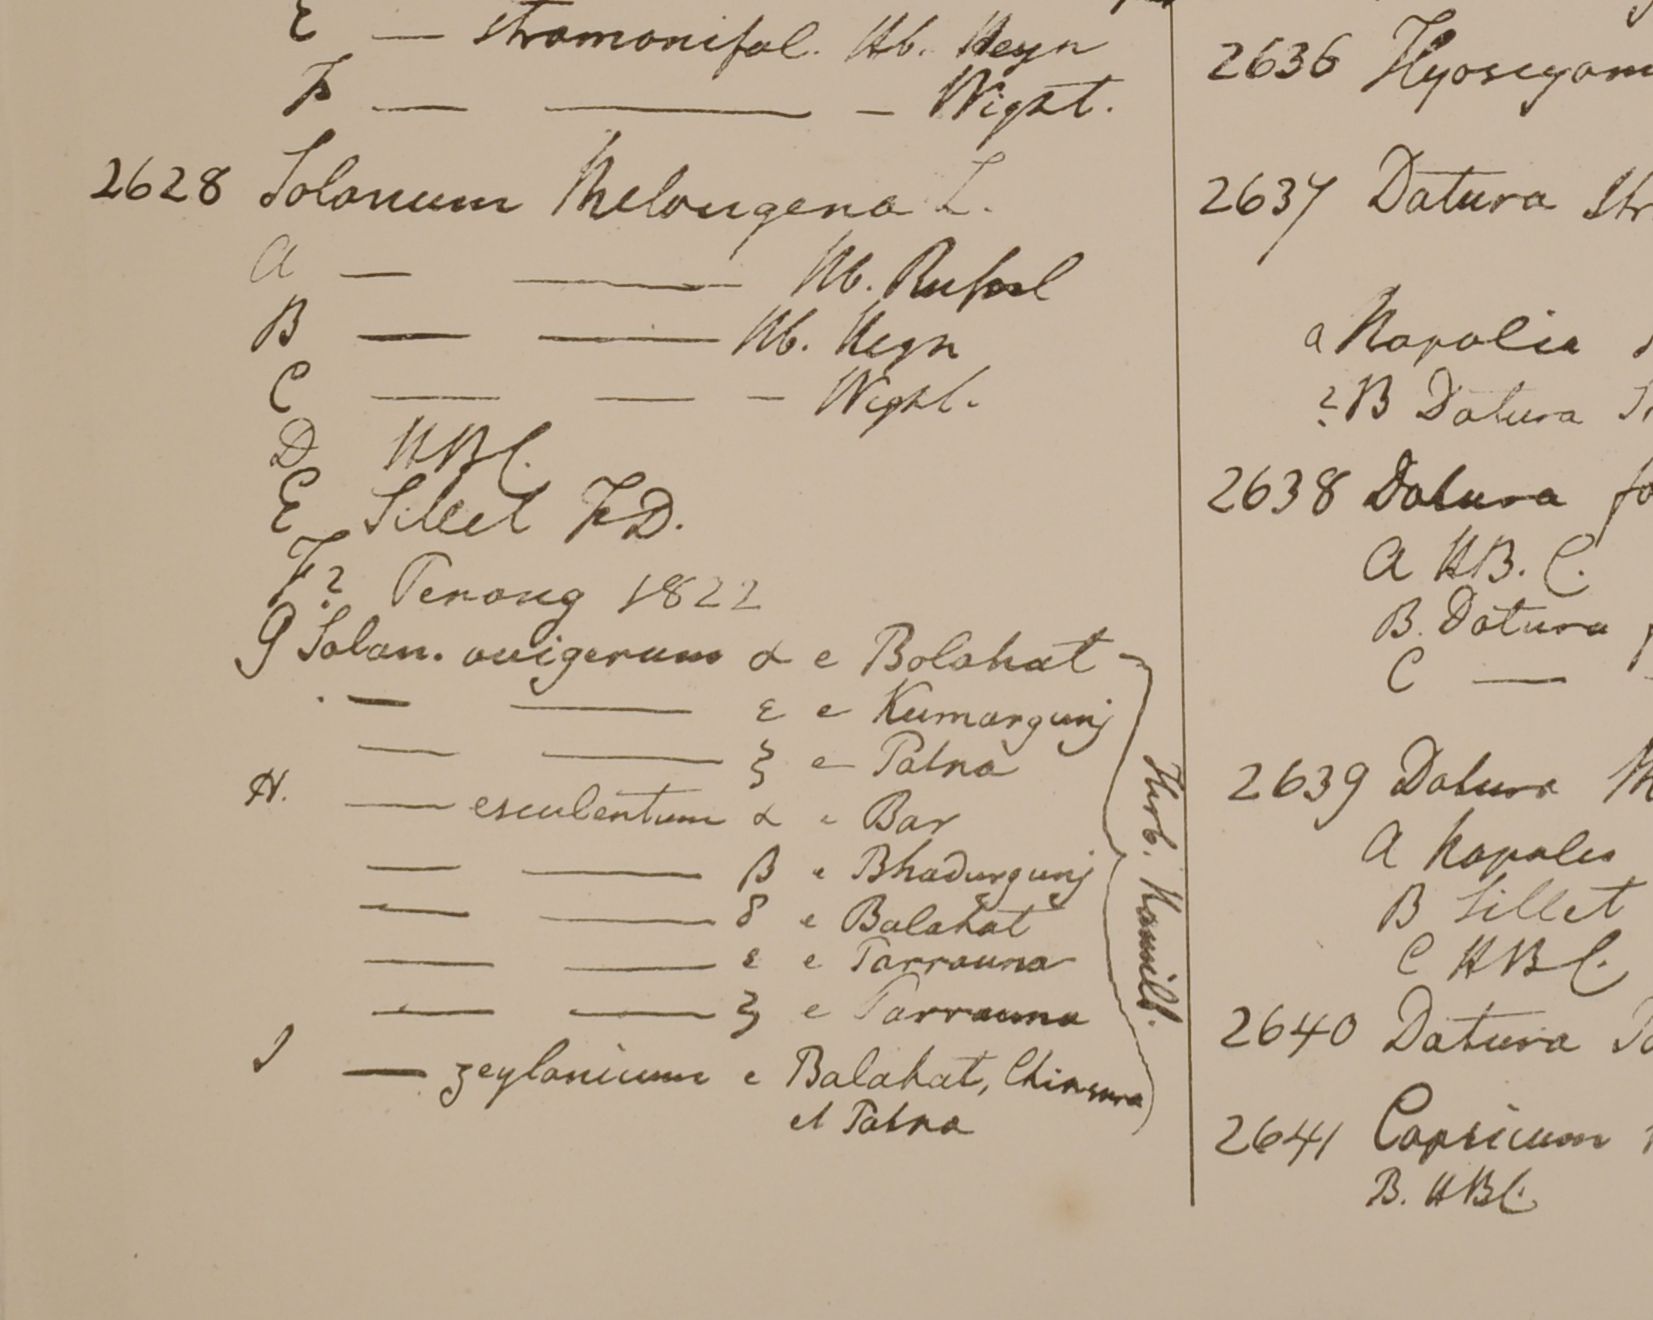 E — stramonifol. Hb. Heyn
F — — — Wight.
2628 Solanum Melongena L.
A — — Hb. Russel
B — — Hb. Heyn
C — — — Wight.
D HBC.
E Sillet FD.
F? Penang 1822
G Solan. ovigerum α e Bolahat
— — ε e Kumargunj
— — ξ e Patna
H. — esculentum α e Bar
— — β e Bhadurgunj
— — δ e Balahat
— — ε e Tarrauna
— — ξ e Tarrauna
I — zeylanicum e Balahat, Chinsura
et Patna
Herb. Hamilt.
2636 Hyoscyam
2637 Datura Str
a Napalia
?B Datura
2638 Datura fa
A HB. C.
B. Datura
C —
2639 Datura M
A Napalia
B Sillet
C HBC.
2640 Datura
2641 Capsicum
B. HBC.